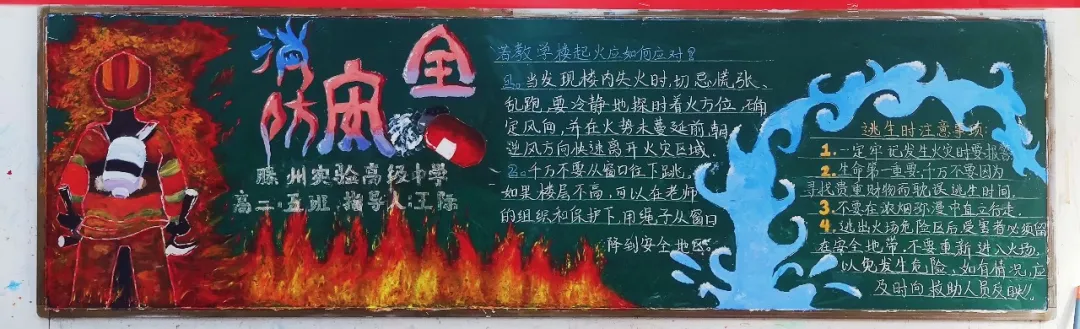 消防安全
滕州实验高级中学
高二·五班 指导人:王际
若教学楼起火应如何应对?
1.当发现楼内失火时,切忌慌张、
乱跑,要冷静地探明着火方位,确
定风向,并在火势未蔓延前,朝
逆风方向快速离开火灾区域.
2.千万不要从窗口往下跳,
如果楼层不高,可以在老师
的组织和保护下,用绳子从窗口
降到安全地区。
逃生时注意事项:
1.一定牢记发生火灾时要报警
2.生命第一重要,千万不要因为
寻找贵重财物而耽误逃生时间.
3.不要在浓烟弥漫中直立行走.
4.逃出火场危险区后,受害者必须留
在安全地带,不要重新进入火场,
以免发生危险,如有情况,应
及时向救助人员反映!!